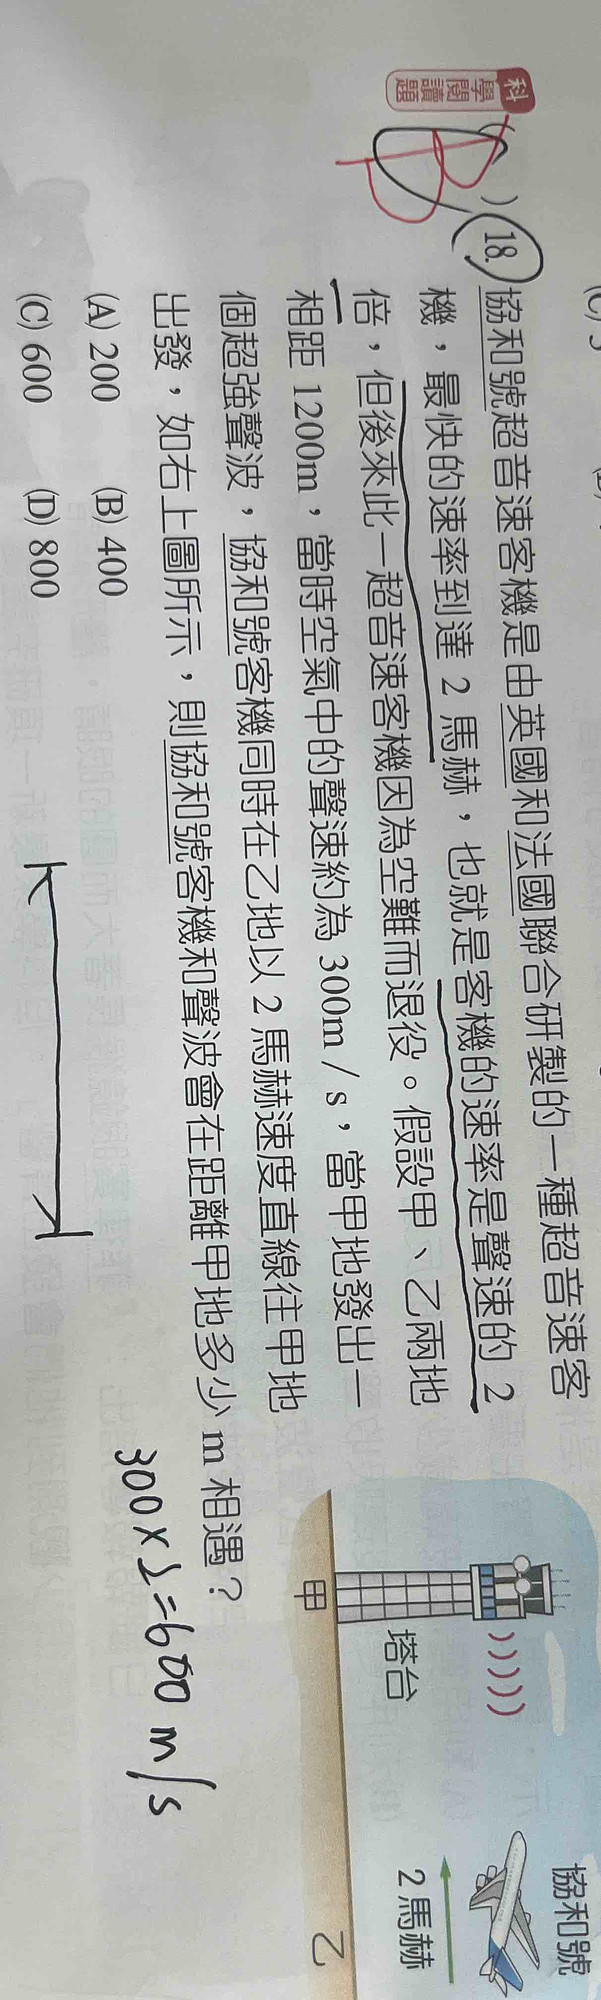 科
學閱讀題
B
( ) 18. 協和號超音速客機是由英國和法國聯合研製的一種超音速客
機，最快的速率到達 2 馬赫，也就是客機的速率是聲速的 2
倍，但後來此一超音速客機因為空難而退役。假設甲、乙兩地
相距 1200m，當時空氣中的聲速約為 300m / s，當甲地發出一
個超強聲波，協和號客機同時在乙地以 2 馬赫速度直線往甲地
出發，如右上圖所示，則協和號客機和聲波會在距離甲地多少 m 相遇？
(A) 200 (B) 400
(C) 600 (D) 800
300 × 2 = 600 m/s
協和號
2 馬赫
塔台
甲
乙